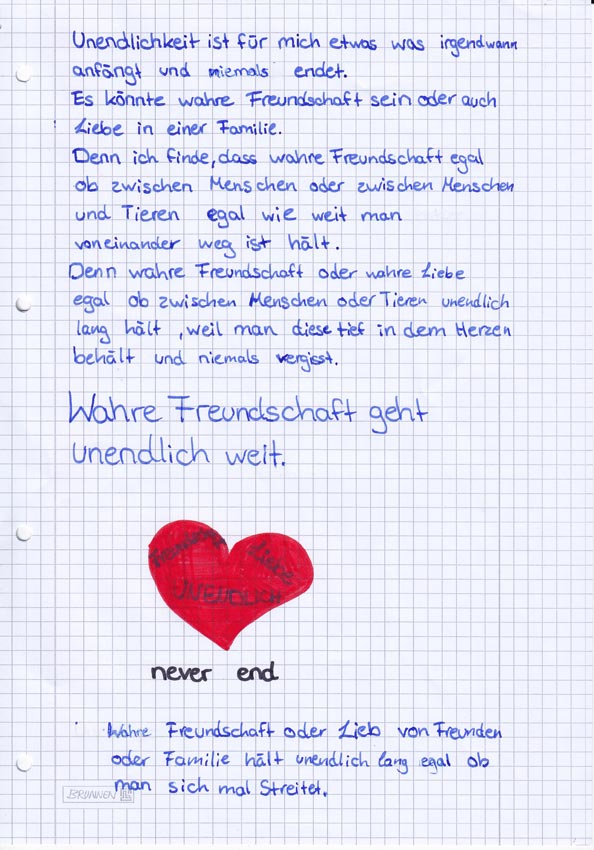 Unendlichkeit ist für mich etwas was irgendwann
anfängt und niemals endet.
Es könnte wahre Freundschaft sein oder auch
Liebe in einer Familie.
Denn ich finde, dass wahre Freundschaft egal
ob zwischen Menschen oder zwischen Menschen
und Tieren egal wie weit man
voneinander weg ist hält.
Denn wahre Freundschaft oder wahre Liebe
egal ob zwischen Menschen oder Tieren unendlich
lang hält, weil man diese tief in dem Herzen
behält und niemals vergisst.
Wahre Freundschaft geht
unendlich weit.
Freundschaft Liebe
UNENDLICH
never end
Wahre Freundschaft oder Lieb von Freunden
oder Familie hält unendlich lang egal ob
man sich mal Streitet.
BRUNNEN